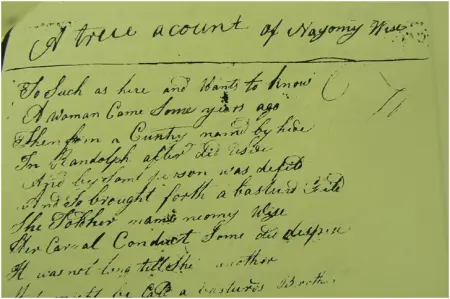 A true acount of Nayomy Wise
To Such as here and Wants to know
A woman Came Some years ago
Then from a Cuntry namd by hide
In Randolph after did
And by Some person was defild
And So brought forth a basturd
She Told her name neomy Wise
Her Carnal Conduct Some did despise
It was not long till She another
might be Cald a basturds Mother